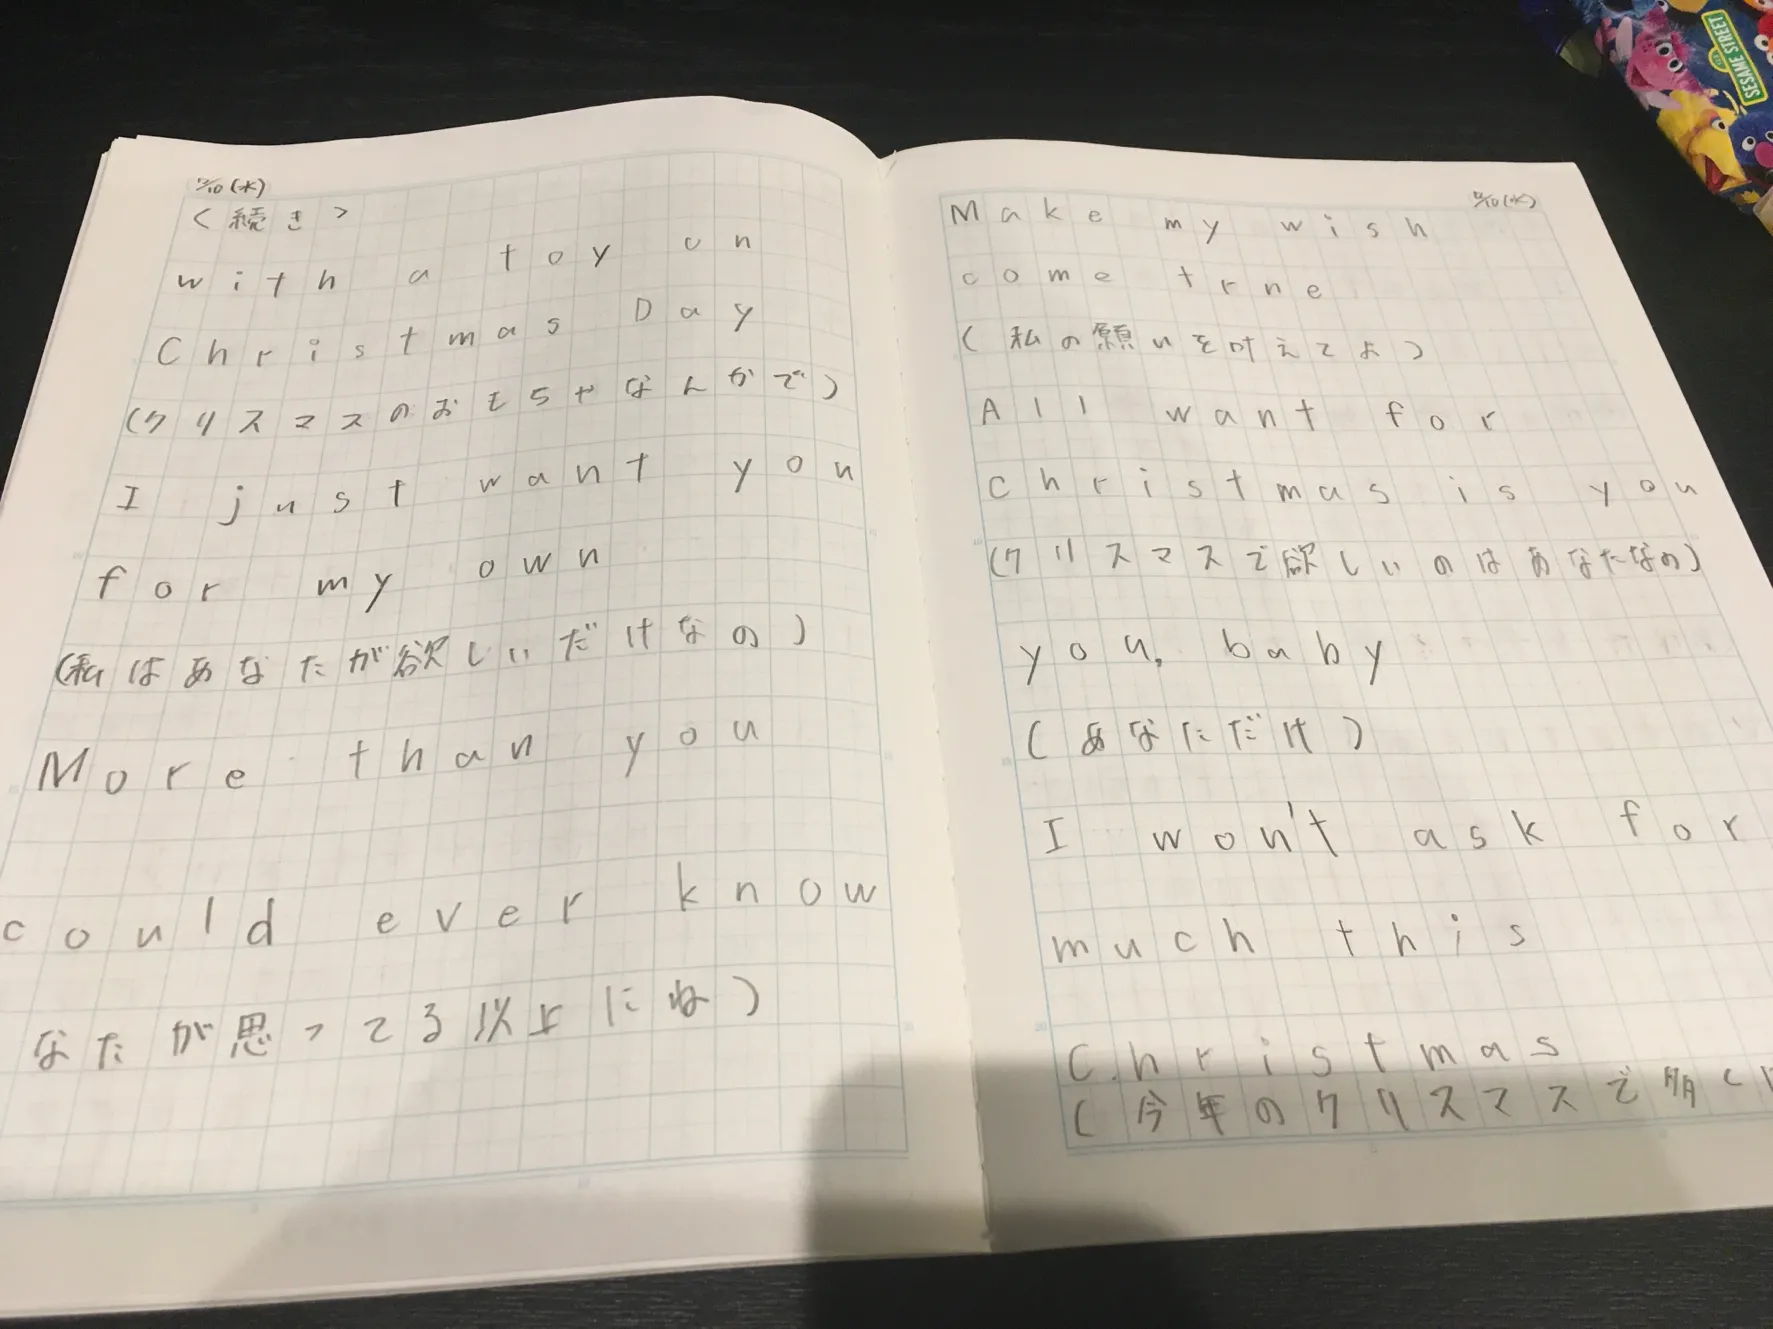 12/10(水)
<続き>
with a toy on
Christmas Day
(クリスマスのおもちゃなんかで)
I just want you
for my own
(私はあなたが欲しいだけなの)
More than you
could ever know
なたが思ってる以上にね)
12/10(水)
Make my wish
come trne
(私の願いを叶えてよ)
All want for
christmas is you
(クリスマスで欲しいのはあなたなの)
you, baby
(あなただけ)
I won't ask for
much this
Christmas
(今年のクリスマスで多く
SESAME STREET